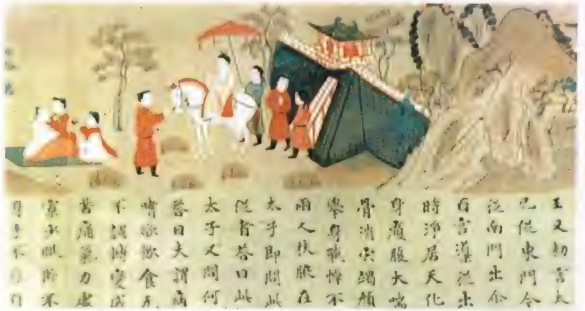 王又勅言太
已從東門今
從南門出尒
百官導從出
時淨居天化
身瘦腹大喘
骨消肉竭顔
舉身戰悼不
兩人扶腋在
太子即問此
從者答曰此
太子又問何
答曰夫謂病
嗜欲飲食无
不調轉變成
苦痛氣力虛